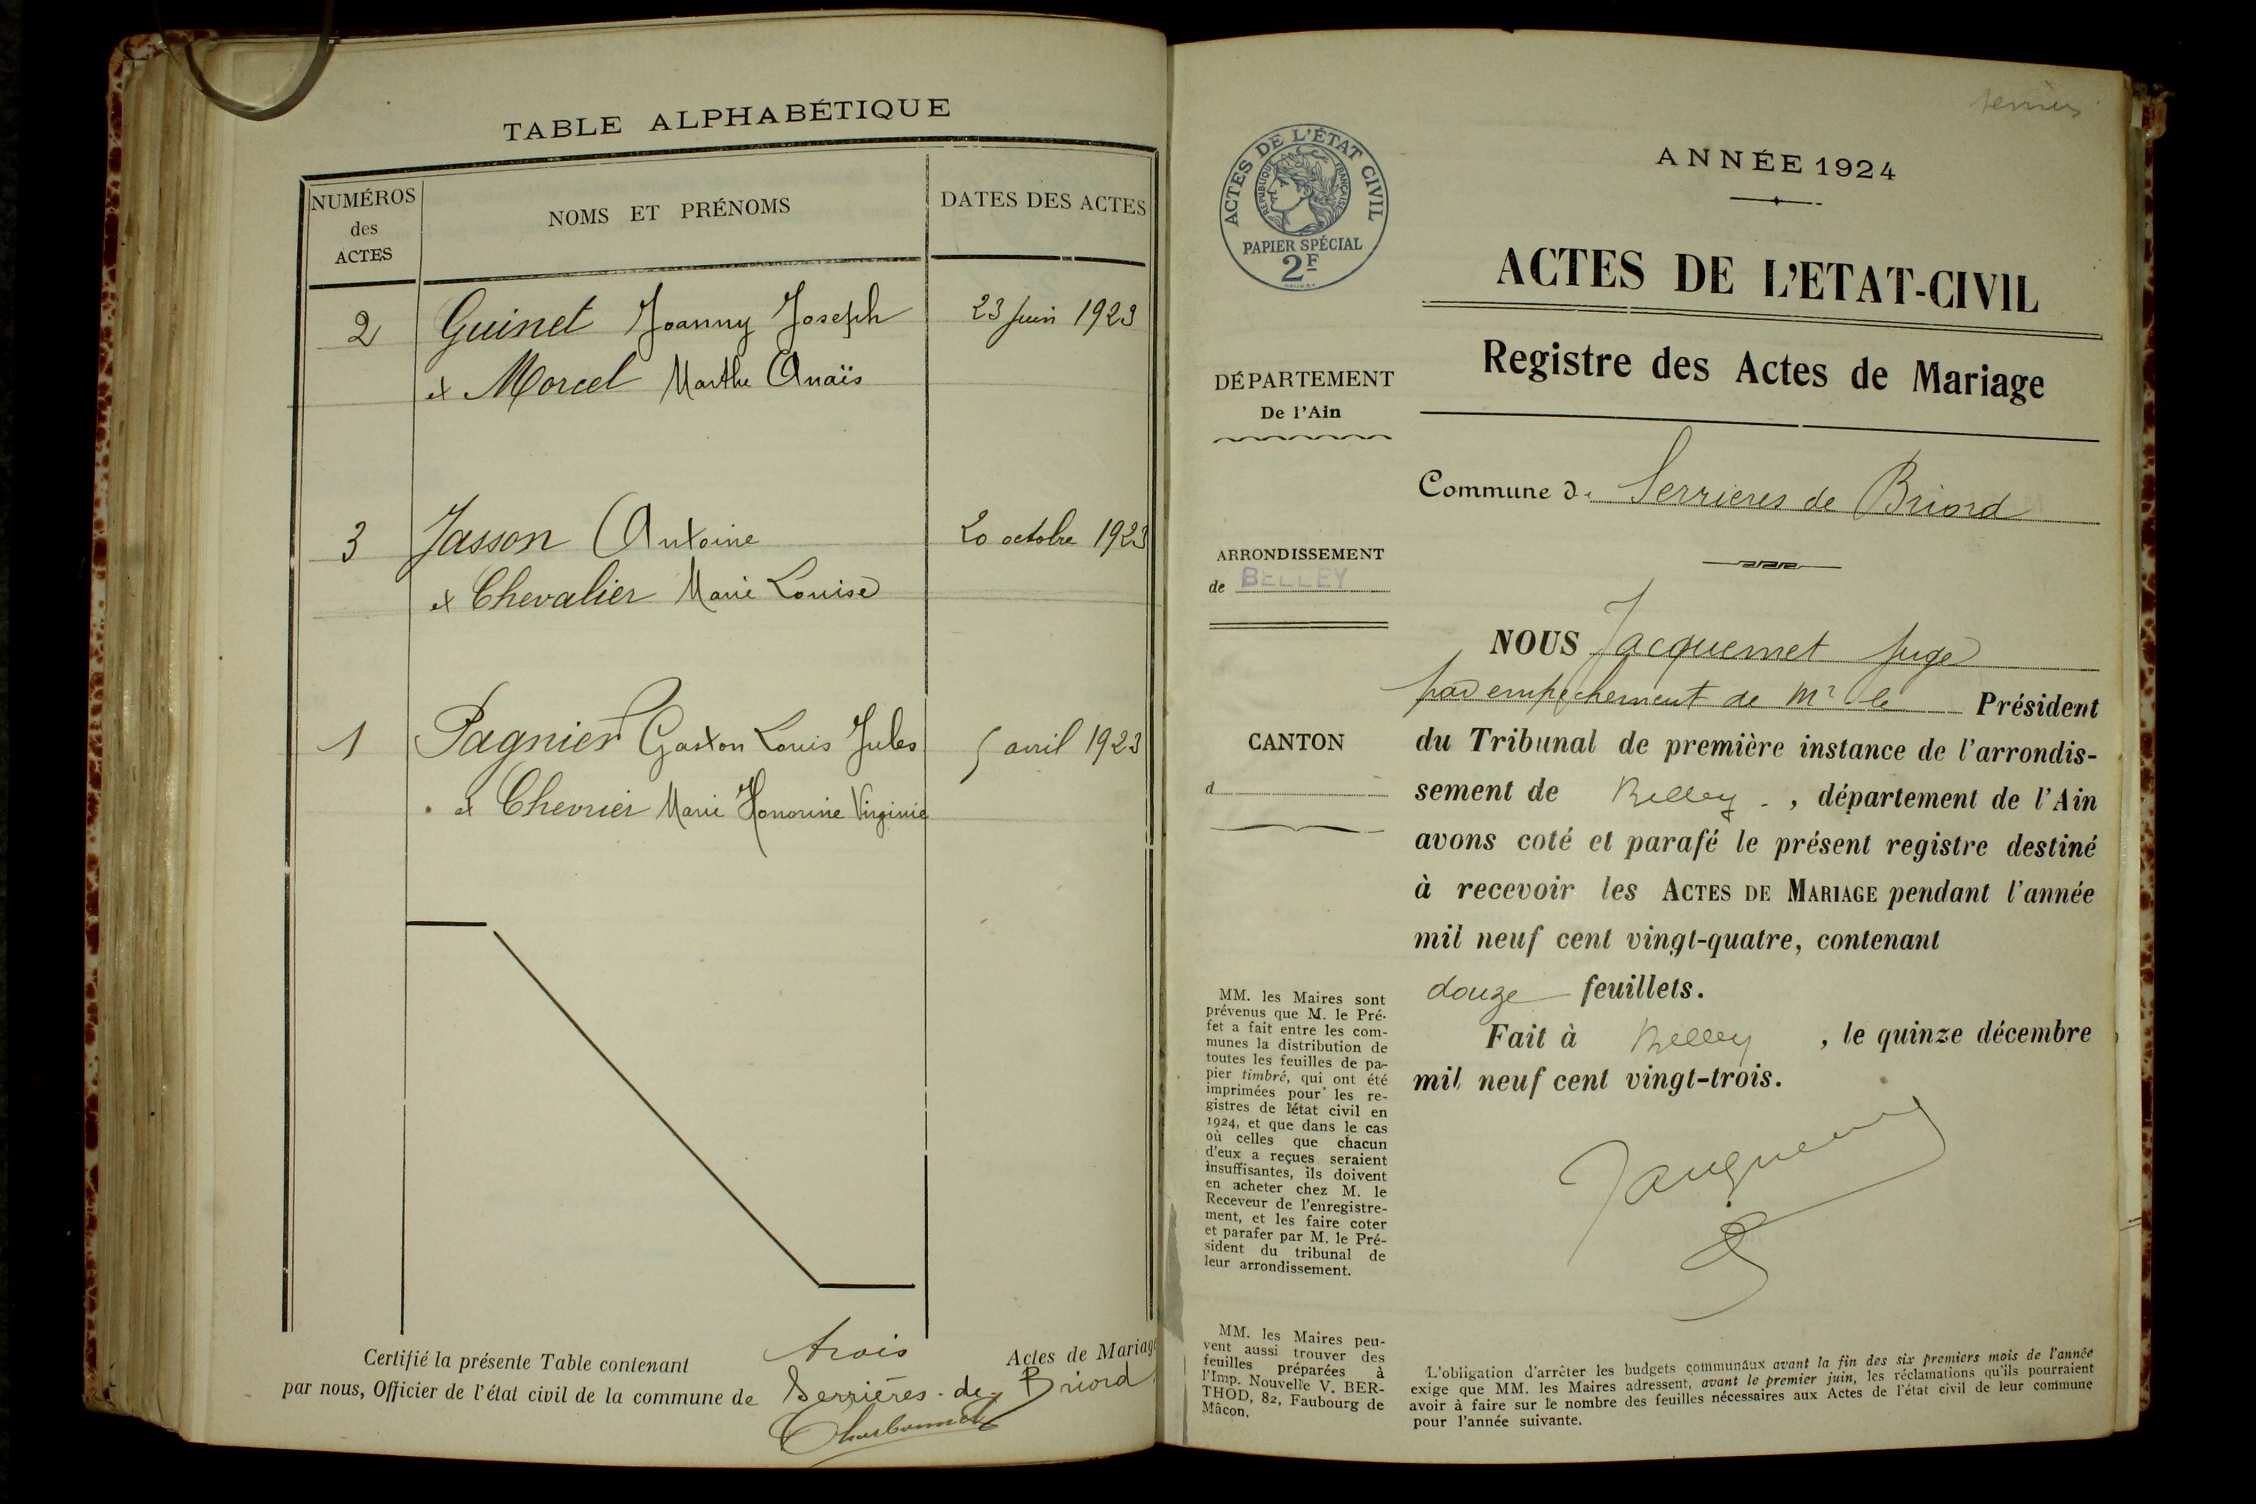 TABLE ALPHABÉTIQUE
NUMÉROS
des
ACTES
NOMS ET PRÉNOMS
DATES DES ACTES
2 Guinet Joanny Joseph 23 juin 1923
et Morcel Marthe Anaïs
3 Jasson Antoine 20 octobre 1923
et Chevalier Marie Louise
1 Pagnier Gaston Louis Jules 5 avril 1923
et Chevrier Marie Honorine Virginie
Certifié la présente Table contenant trois Actes de Mariage
par nous, Officier de l'état civil de la commune de Serrières-de-Briord
ACTES DE L'ÉTAT CIVIL
RÉPUBLIQUE FRANÇAISE
PAPIER SPÉCIAL
2F
DÉPARTEMENT
De l'Ain
ARRONDISSEMENT
de BELLEY
CANTON
d
MM. les Maires sont
prévenus que M. le Pré-
fet a fait entre les com-
munes la distribution de
toutes les feuilles de pa-
pier timbré, qui ont été
imprimées pour les re-
gistres de l'état civil en
1924, et que dans le cas
où celles que chacun
d'eux a reçues seraient
insuffisantes, ils doivent
en acheter chez M. le
Receveur de l'enregistre-
ment, et les faire coter
et parafer par M. le Pré-
sident du tribunal de
leur arrondissement.
MM. les Maires peu-
vent aussi trouver des
feuilles préparées à
l'Imp. Nouvelle V. BER-
THOD, 82, Faubourg de
Mâcon.
ANNÉE 1924
ACTES DE L'ETAT-CIVIL
Registre des Actes de Mariage
Commune de Serrieres de Briord
NOUS Jacquemet Juge
par empechement de Mr le Président
du Tribunal de première instance de l'arrondis-
sement de Belley, département de l'Ain
avons coté et parafé le présent registre destiné
à recevoir les ACTES DE MARIAGE pendant l'année
mil neuf cent vingt-quatre, contenant
douze feuillets.
Fait à Belley, le quinze décembre
mil neuf cent vingt-trois.
L'obligation d'arrêter les budgets communaux avant la fin des six premiers mois de l'année
exige que MM. les Maires adressent, avant le premier juin, les réclamations qu'ils pourraient
avoir à faire sur le nombre des feuilles nécessaires aux Actes de l'état civil de leur commune
pour l'année suivante.